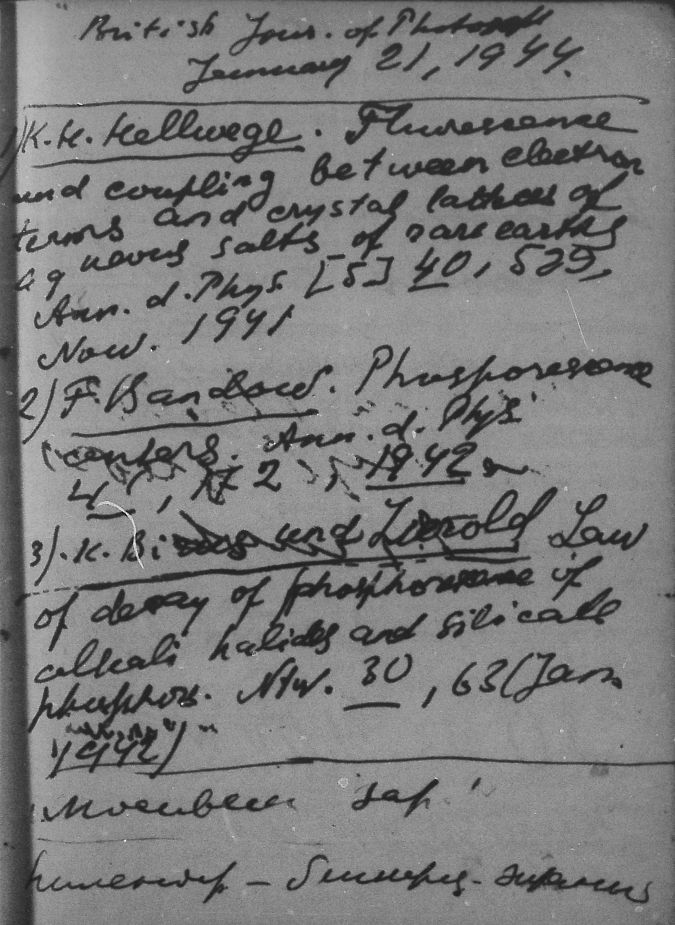 British Jour. of Photogr
January 21, 1944.
1) K.H. Hellwege. Fluorescence
and coupling between electron
terms and crystal lattices of
aqueous salts of rare earths
Ann. d. Phys [5] 40, 529,
Nov. 1941
2) F. Bandow. Phosphorescence
centers. Ann. d. Phys
172, 1942
3). K. und Law
of decay of phosphorescence of
alkali halides and silicate
phosphors. Ntw. 30, 63 (Jan.
1942)